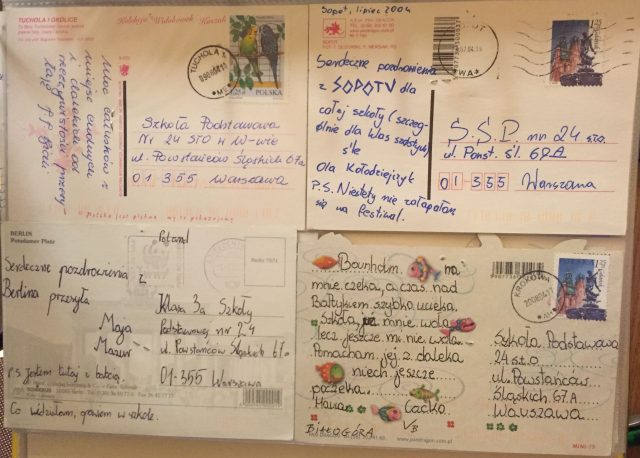 TUCHOLA I OKOLICE
Kolekcja Widokówek Kaszub
TUCHOLA 1
POLSKA
Moc całusków z
miejsc cudnych
i dalekich od
rzeczywistości przesy-
Szkoła Podstawowa
Nr 24 STO w W-wie
ul. Powstańców Śląskich 67a
01 355 Warszawa
Polska jest piękna my to pokazujemy
Sopot, lipiec 2004
SOPOT
Serdeczne pozdrowienia
z SOPOTU dla
całej szkoły (szczeg-
ólnie dla Was szóstych)
śle
Ola Kołodziejczyk
P.S. Niestety nie załapałam
się na festiwal.
S.S.P. nr 24 STO.
ul. Powst. śl. 67A
01-355 Warszawa
BERLIN
Potsdamer Platz
Poland
Serdeczne pozdrowienia z
Berlina przesyła
Maja
Mazur
p.s jestem tutaj z babcią.
Co widziałam, opowiem w szkole.
Klasa 3a Szkoły
Podstawowej nr 24
ul. Powstańców Śląskich 67a
01-355 Warszawa
Bornholm na
mnie czeka, a czas nad
Bałtykiem szybko ucieka.
Szkoła już mnie woła
lecz jeszcze mi nie wola
Pomacham jej z daleka
niech jeszcze
poczeka.
Hania Caćko
VB
BIAŁOGÓRA
KROKOWA
Szkoła Podstawowa
24 s.t.o
ul. Powstańców
Śląskich 67A
Warszawa
www.pandragon.com.pl
MINI-75